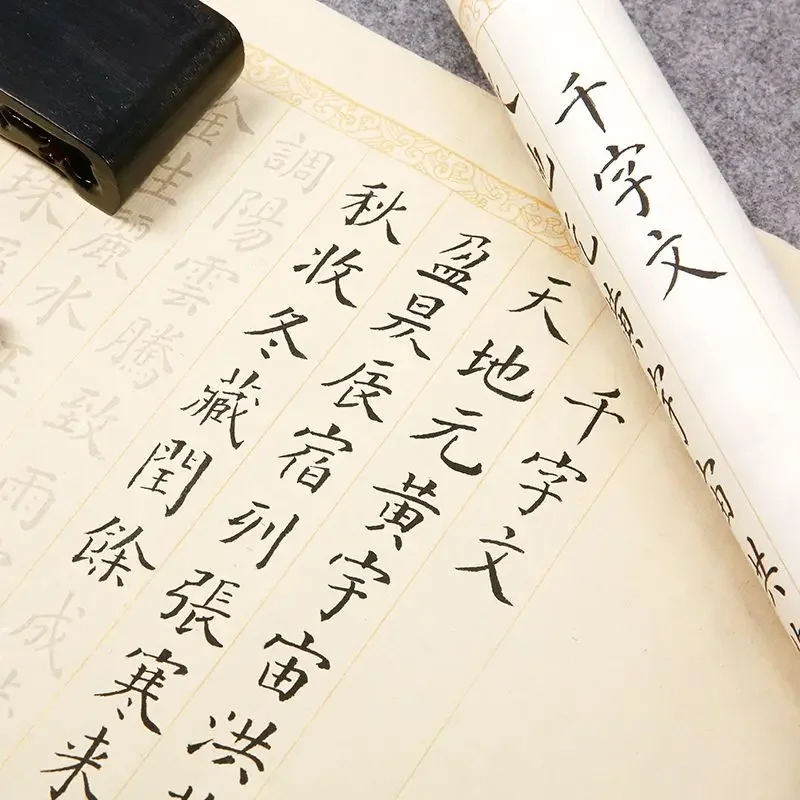 千字文
千字文
天地元黄宇宙洪
盈昃辰宿列張寒来
秋收冬藏閏餘成
調陽雲騰致雨
金生麗水
珠